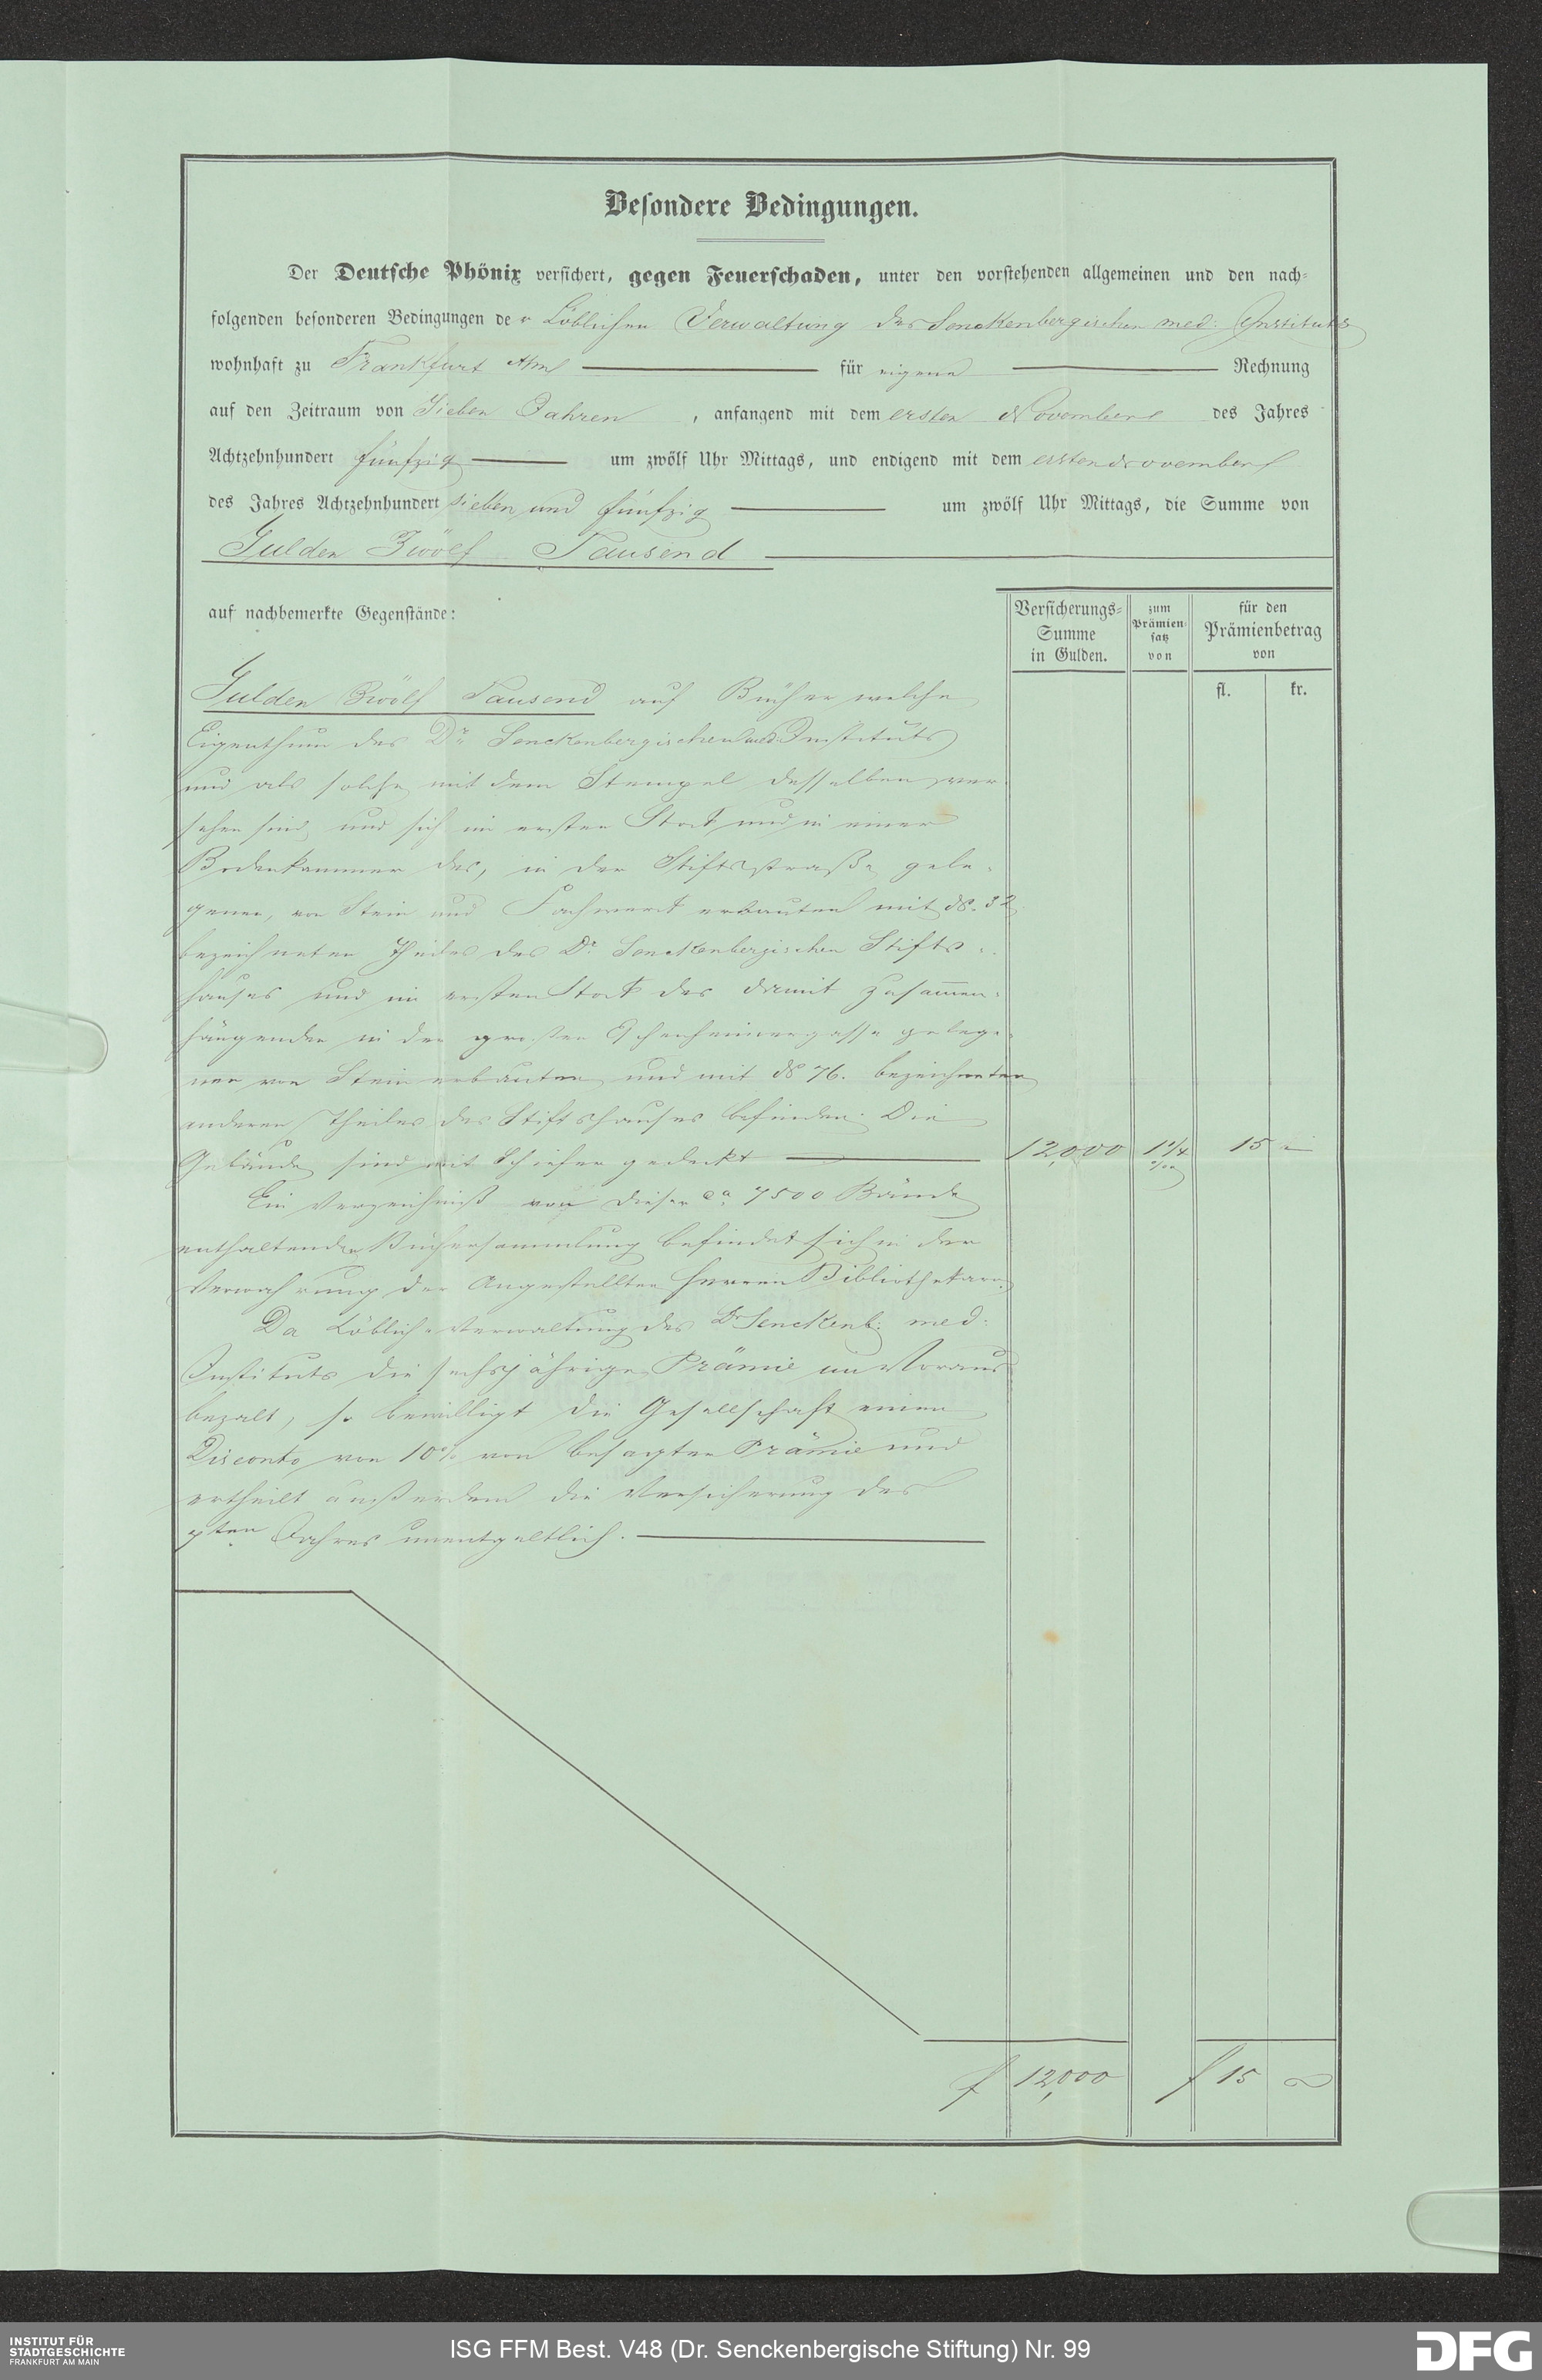 Besondere Bedingungen.
Der Deutsche Phönix versichert, gegen Feuerschaden, unter den vorstehenden allgemeinen und den nach-
folgenden besonderen Bedingungen der Löblichen Verwaltung des Senckenbergischen med. Instituts
wohnhaft zu Frankfurt a/m für eigene Rechnung
auf den Zeitraum von Sieben Jahren, anfangend mit dem ersten November des Jahres
Achtzehnhundert fünfzig um zwölf Uhr Mittags, und endigend mit dem ersten November
des Jahres Achtzehnhundert sieben und fünfzig um zwölf Uhr Mittags, die Summe von
Gulden Zwölf Tausend
auf nachbemerkte Gegenstände:
Versicherungs-Summe in Gulden.
zum Prämiensatz von
für den Prämienbetrag von
fl. kr.
Gulden Zwölf Tausend auf Bücher welche
Eigenthum des Dr. Senckenbergischen med. Instituts
und als solche mit dem Stempel desselben ver-
sehen sind und sich im ersten Stock und in einer
Bodenkammer des, in der Stiftsstraße gele-
genen, von Stein und Fachwerk erbauten mit No. 32
bezeichneten Theiles des Dr. Senckenbergischen Stifts-
hauses und im ersten Stock des damit zusammen-
hängenden in der großen Eschenheimergasse gelege-
nen von Stein erbauten und mit No 76. bezeichneten
anderen Theiles des Stiftshauses befinden. Die
Gebäude sind mit Schiefer gedeckt 12,000 1 1/4 ‰ 15 –
Ein Verzeichniß von dieser ca. 7500 Bände
enthaltenden Büchersammlung befindet sich in der
Verwahrung der Angestellten Herren Bibliothekare.
Da Löbliche Verwaltung des Dr Senckenb: med:
Instituts die sechsjährige Prämie im Voraus
bezalt, so bewilligt die Gesellschaft einen
Disconto von 10% von besagter Prämie und
ertheilt außerdem die Versicherung des
7ten Jahres unentgeltlich.
f 12,000 f 15
INSTITUT FÜR
STADTGESCHICHTE
FRANKFURT AM MAIN
ISG FFM Best. V48 (Dr. Senckenbergische Stiftung) Nr. 99
DFG